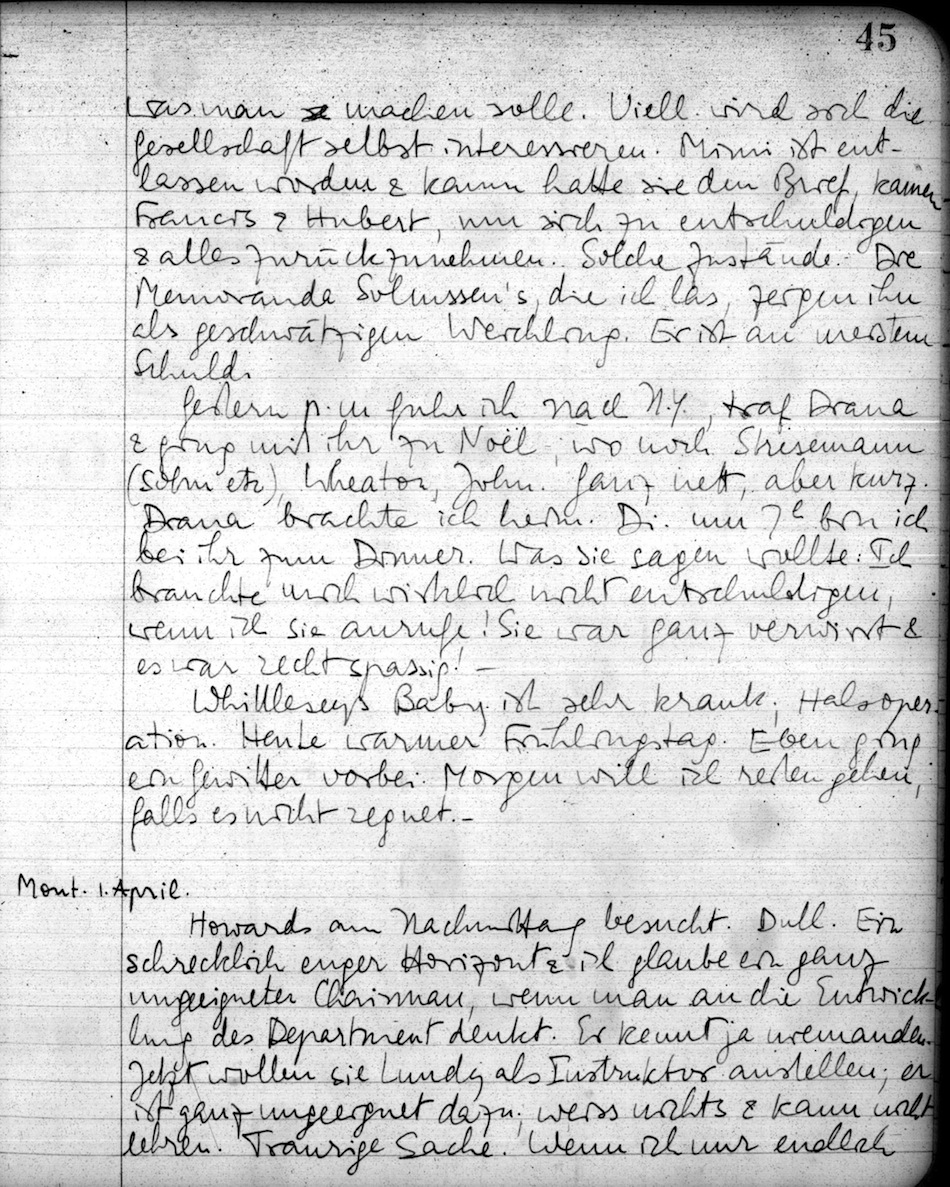 45
was man machen solle. Viell. wird sich die
Gesellschaft selbst interessieren. Mimi ist ent-
lassen worden & kaum hatte sie den Brief, kamen
Francis & Hubert, um sich zu entschuldigen
& alles zurückzunehmen. Solche Zustände. Die
Memoranda Solmssen's, die ich las, zeigen ihn
als geschwätzigen Weichling. Er ist am meisten
Schuld.
Gestern p.m fuhr ich nach N.Y., traf Drana
& ging mit ihr zu Noël, wo noch Stresemann
(Sohn etc), Wheaton, John. Ganz nett, aber kurz.
Drana brachte ich heim. Di. um 7h bin ich
bei ihr zum Dinner. Was sie sagen wollte: Ich
brauchte mich wirklich nicht entschuldigen,
wenn ich sie anrufe! Sie war ganz verwirrt &
es war recht spassig! –
Whittleseys Baby ist sehr krank, Halsoper-
ation. Heute warmer Frühlingstag. Eben ging
ein Gewitter vorbei. Morgen will ich reiten gehen,
falls es nicht regnet. –
Mont. 1. April.
Howards am Nachmittag besucht. Dull. Ein
schrecklich enger Horizont & ich glaube ein ganz
ungeeigneter Chairman, wenn man an die Entwick-
lung des Department denkt. Er kennt ja niemanden.
Jetzt wollen sie Lundy als Instruktor anstellen; er
ist ganz ungeeignet dazu, weiss nichts & kann nicht
lehren. Traurige Sache. Wenn ich nur endlich